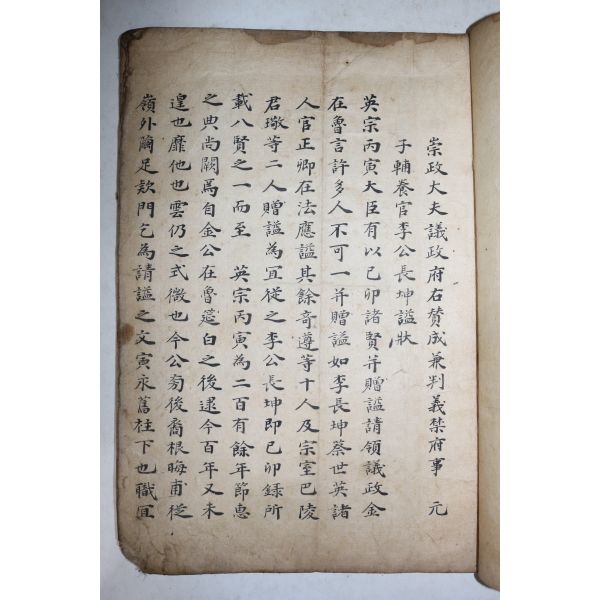 崇政大夫議政府右贊成兼判義禁府事 元
子輔養官李公長坤諡狀
英宗丙寅大臣有以己卯諸賢并贈諡請領議政金
在魯言許多人不可一并贈諡如李長坤蔡世英諸
人官正卿在法應諡其餘竒遵等十人及宗室巴陵
君璥等二人贈諡為冝從之李公長坤即己卯錄所
載八賢之一而至 英宗丙寅為二百有餘年節惠
之典尚闕焉自金公在魯筵白之後逮今百年又未
遑也靡他也雲仍之式微也今公旁後裔根晦甫從
嶺外繭足欵門乞為請諡之文寅永舊柱下也職冝